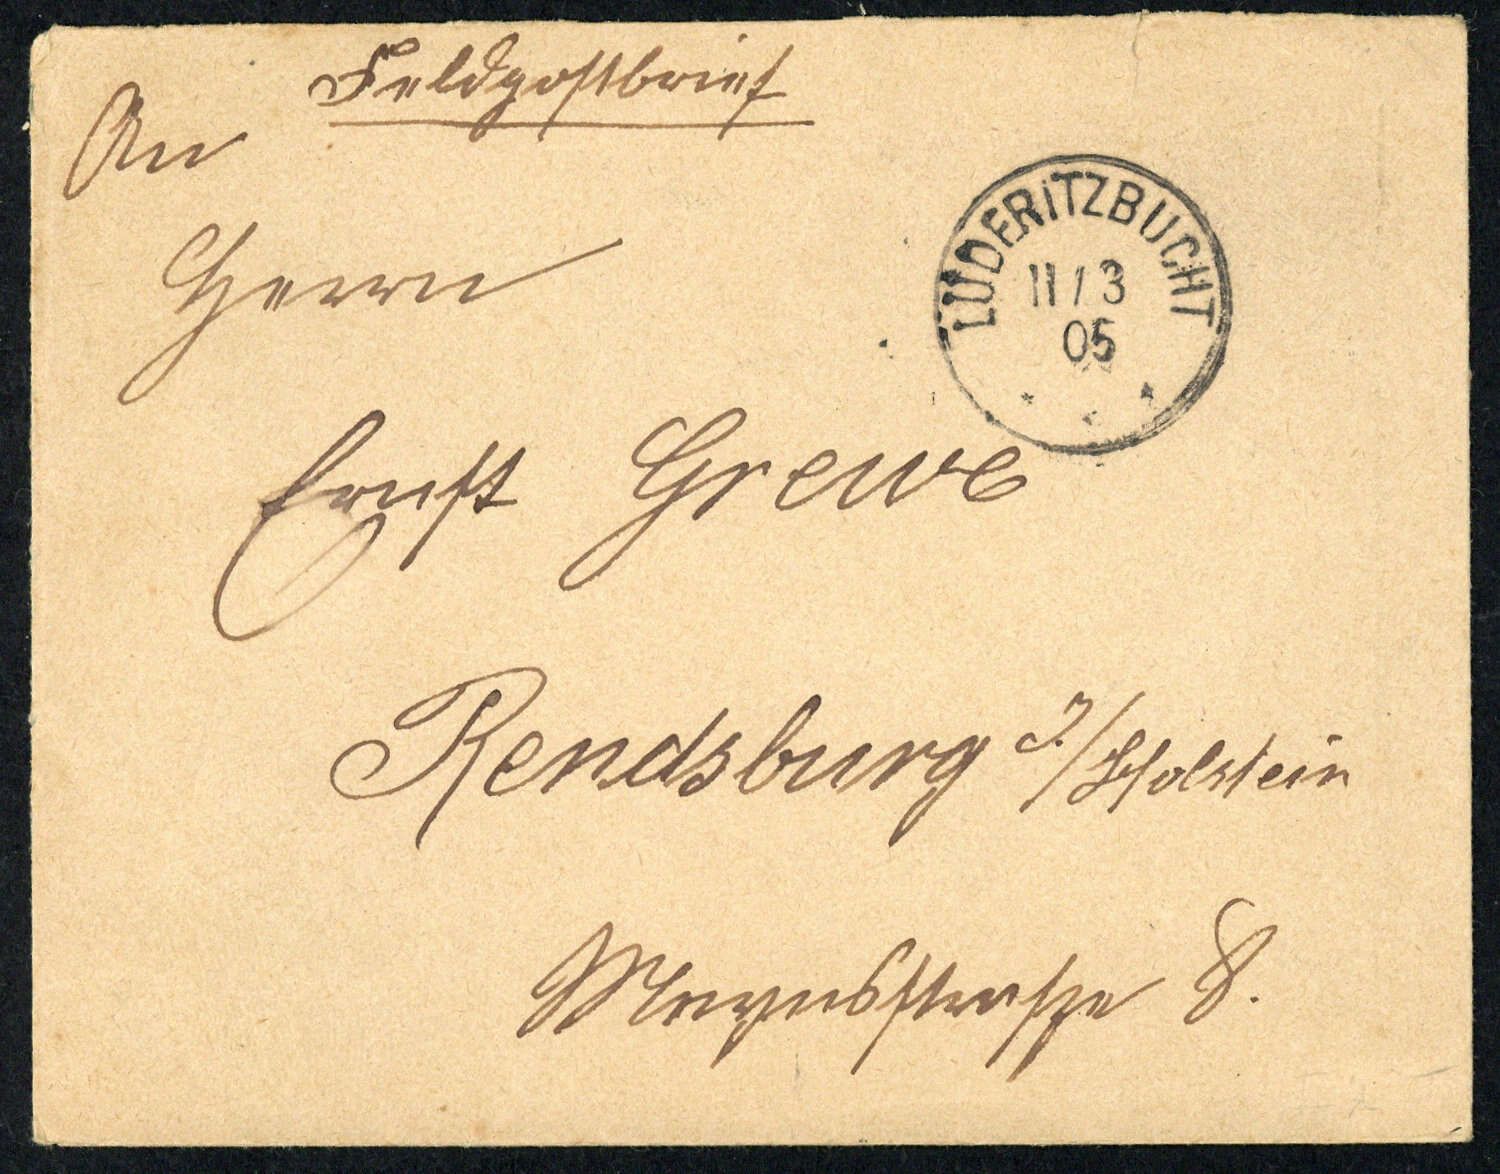 Feldpostbrief
An
Herrn
LÜDERITZBUCHT
11/3
05
Ernst Grewe
Rendsburg i/Holstein
8.